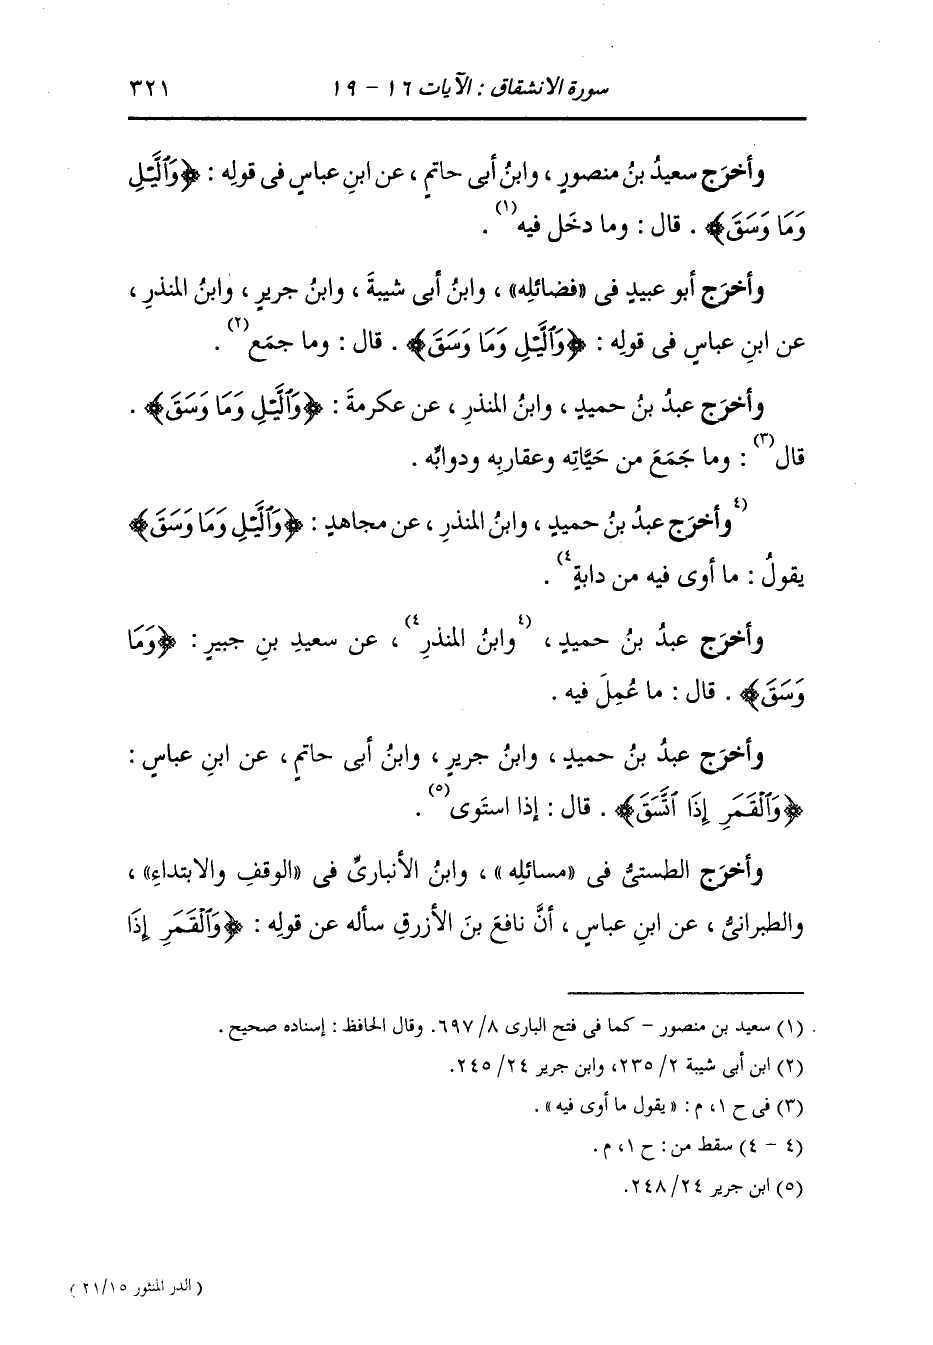 سورة الانشقاق : الآيات ١٦ - ١٩ ٣٢١
وأخرَج سعيدُ بنُ منصورٍ ، وابنُ أبى حاتمٍ ، عن ابنِ عباسٍ فى قولِه : ﴿وَٱلَّيۡلِ
وَمَا وَسَقَ﴾ . قال : وما دخَل فيه(١) .
وأخرَج أبو عبيدٍ فى «فضائلِه» ، وابنُ أبى شيبةَ ، وابنُ جريرٍ ، وابنُ المنذرِ ،
عن ابنِ عباسٍ فى قولِه : ﴿وَٱلَّيۡلِ وَمَا وَسَقَ﴾ . قال : وما جمَع(٢) .
وأخرَج عبدُ بنُ حميدٍ ، وابنُ المنذرِ ، عن عكرمةَ : ﴿وَٱلَّيۡلِ وَمَا وَسَقَ﴾ .
قال(٣) : وما جَمَعَ من حَيَّاتِه وعقاربِه ودوابِّه .
(٤وأخرَج عبدُ بنُ حميدٍ ، وابنُ المنذرِ ، عن مجاهدٍ : ﴿وَٱلَّيۡلِ وَمَا وَسَقَ﴾
يقولُ : ما أوى فيه من دابةٍ٤) .
وأخرَج عبدُ بنُ حميدٍ ، (٤وابنُ المنذرِ٤) ، عن سعيدِ بنِ جبيرٍ : ﴿وَمَا
وَسَقَ﴾ . قال : ما عُمِلَ فيه .
وأخرَج عبدُ بنُ حميدٍ ، وابنُ جريرٍ ، وابنُ أبى حاتمٍ ، عن ابنِ عباسٍ :
﴿وَٱلۡقَمَرِ إِذَا ٱتَّسَقَ﴾ . قال : إذا استَوى(٥) .
وأخرَج الطستىُّ فى «مسائلِه» ، وابنُ الأنبارىِّ فى «الوقفِ والابتداءِ» ،
والطبرانىُّ ، عن ابنِ عباسٍ ، أنَّ نافعَ بنَ الأزرقِ سأله عن قولِه : ﴿وَٱلۡقَمَرِ إِذَا
(١) سعيد بن منصور - كما فى فتح البارى ٨/ ٦٩٧. وقال الحافظ : إسناده صحيح .
(٢) ابن أبى شيبة ٢/ ٢٣٥، وابن جرير ٢٤/ ٢٤٥.
(٣) فى ح ١، م : «يقول ما أوى فيه» .
(٤ - ٤) سقط من : ح ١، م .
(٥) ابن جرير ٢٤/ ٢٤٨.
( الدر المنثور ٢١/١٥ )